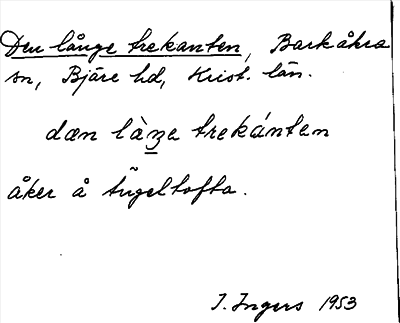 Den långe trekanten, Barkåkra
sn, Bjäre hd, Krist. län.
dæn làŋe trekánten
åker å tũgeltofta.
I. Ingers 1953